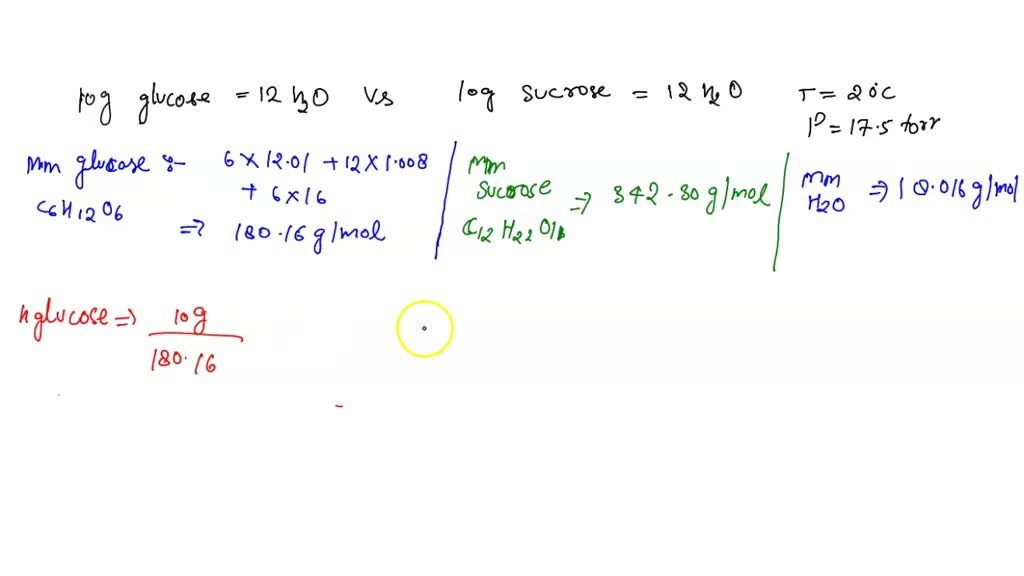 10g glucose = 12 H2O vs 10g sucrose = 12 H2O T = 20°C
P = 17.5 torr
Mm glucose :- 6 × 12.01 + 12 × 1.008
+ 6 × 16
C6H12O6
⇒ 180.16 g/mol
Mm
Sucrose ⇒ 342.30 g/mol
C12H22O11
Mm
H2O ⇒ 18.016 g/mol
nglucose ⇒ 10g
180.16